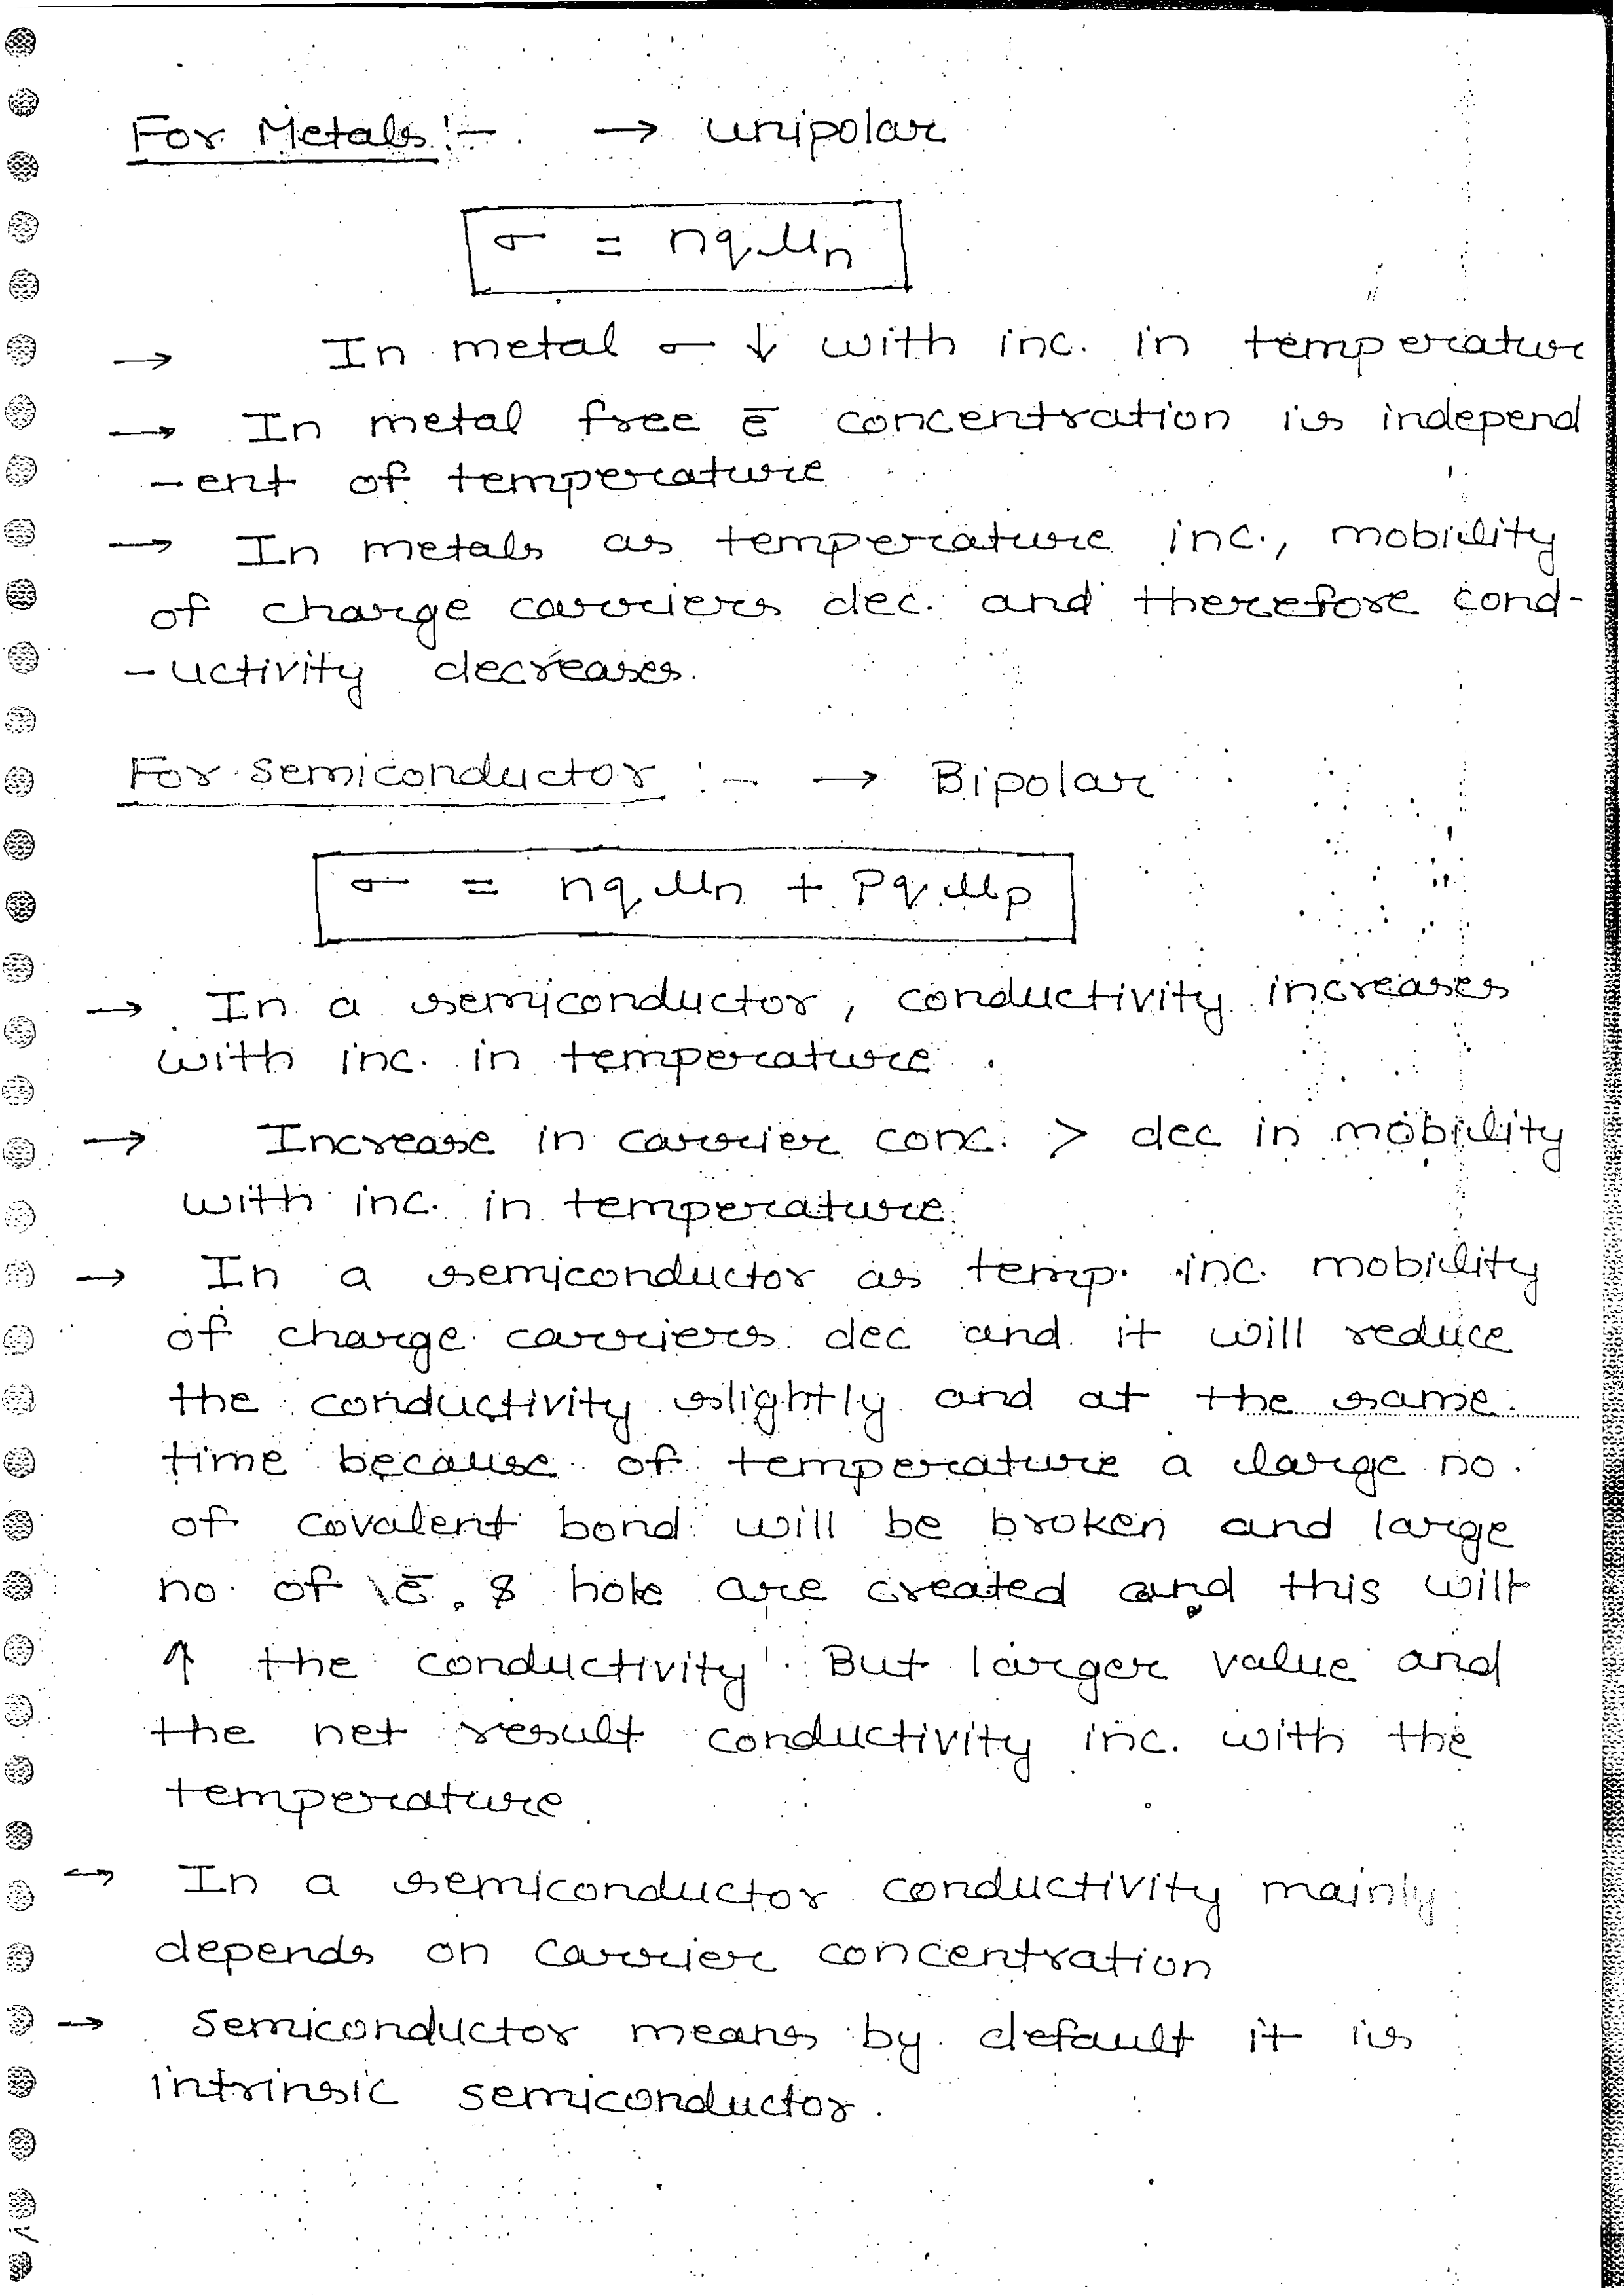 For Metals :- → unipolar
σ = nqμn
→ In metal σ ↓ with inc. in temperature
→ In metal free ē concentration is independ
-ent of temperature
→ In metals as temperature inc., mobility
of charge carriers dec. and therefore cond-
-uctivity decreases.
For semiconductor :- → Bipolar
σ = nqμn + Pqμp
→ In a semiconductor, conductivity increases
with inc. in temperature.
→ Increase in carrier conc. > dec in mobility
with inc. in temperature.
→ In a semiconductor as temp. inc. mobility
of charge carriers dec and it will reduce
the conductivity slightly and at the same
time because of temperature a large no.
of covalent bond will be broken and large
no. of ē, & hole are created and this will
↑ the conductivity. But larger value and
the net result conductivity inc. with the
temperature.
→ In a semiconductor conductivity mainly
depends on carrier concentration
→ Semiconductor means by default it is
intrinsic semiconductor.